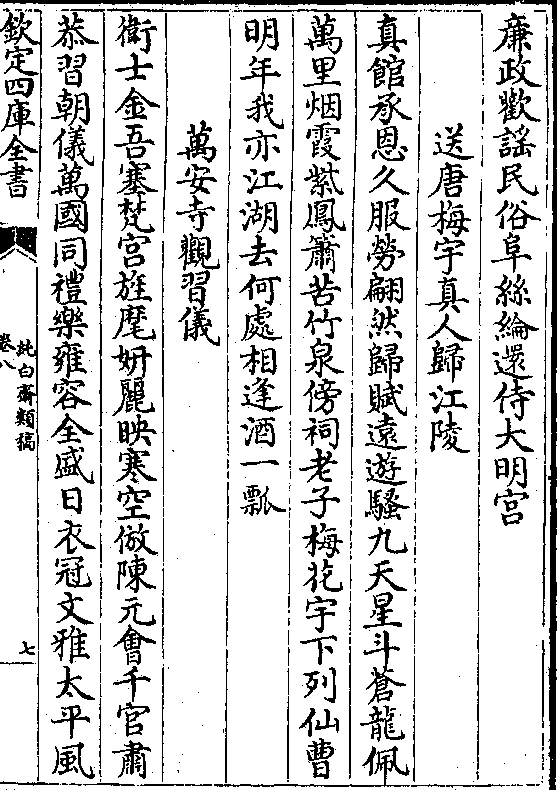 廉政歡謡民俗阜絲綸還侍大明宫
送唐梅宇真人歸江陵
真館承恩久服勞翩然歸賦逺遊騷九天星斗蒼龍佩
萬里烟霞紫鳳簫苦竹泉傍祠老子梅花宇下列仙曹
明年我亦江湖去何處相逢酒一瓢
萬安寺觀習儀
衛士金吾塞梵宫旌麾妍麗映寒空倣陳元會千官肅
恭習朝儀萬國同禮樂雍容全盛日衣冠文雅太平風
欽定四庫全書
純白齋類稿
卷八
七